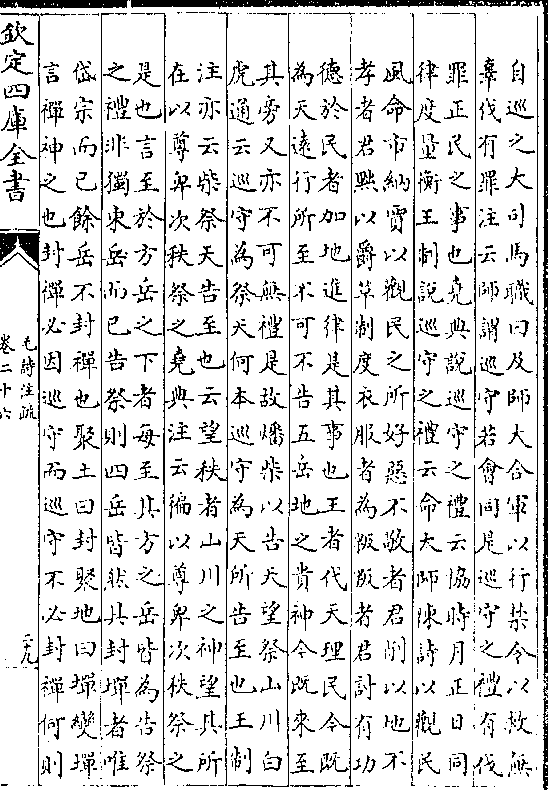 自巡之大司馬職曰及師大合軍以行禁令以救無
辜伐有罪注云師謂巡守若會同是巡守之禮有伐
罪正民之事也堯典說巡守之禮云協時月正日同
律度量衡王制說巡守之禮云命大師陳詩以觀民
風命市納賈以觀民之所好惡不敬者君削以地不
孝者君黜以爵革制度衣服者為叛叛者君討有功
德於民者加地進律是其事也王者代天理民今既
為天遠行所至不可不告五岳地之貴神今既來至
其旁又亦不可無禮是故燔柴以告天望祭山川白
虎通云巡守為祭天何本巡守為天所告至也王制
注亦云柴祭天告至也云望秩者山川之神望其所
在以尊卑次秩祭之堯典注云徧以尊卑次秩祭之
是也言至於方岳之下者每至其方之岳皆為告祭
之禮非獨東岳而已告祭則四岳皆然其封墠者唯
岱宗而已餘岳不封禪也聚土曰封聚地曰墠變墠
言禪神之也封禪必因巡守而巡守不必封禪何則
欽定四庫全書
毛詩注疏
卷二十六
二十九